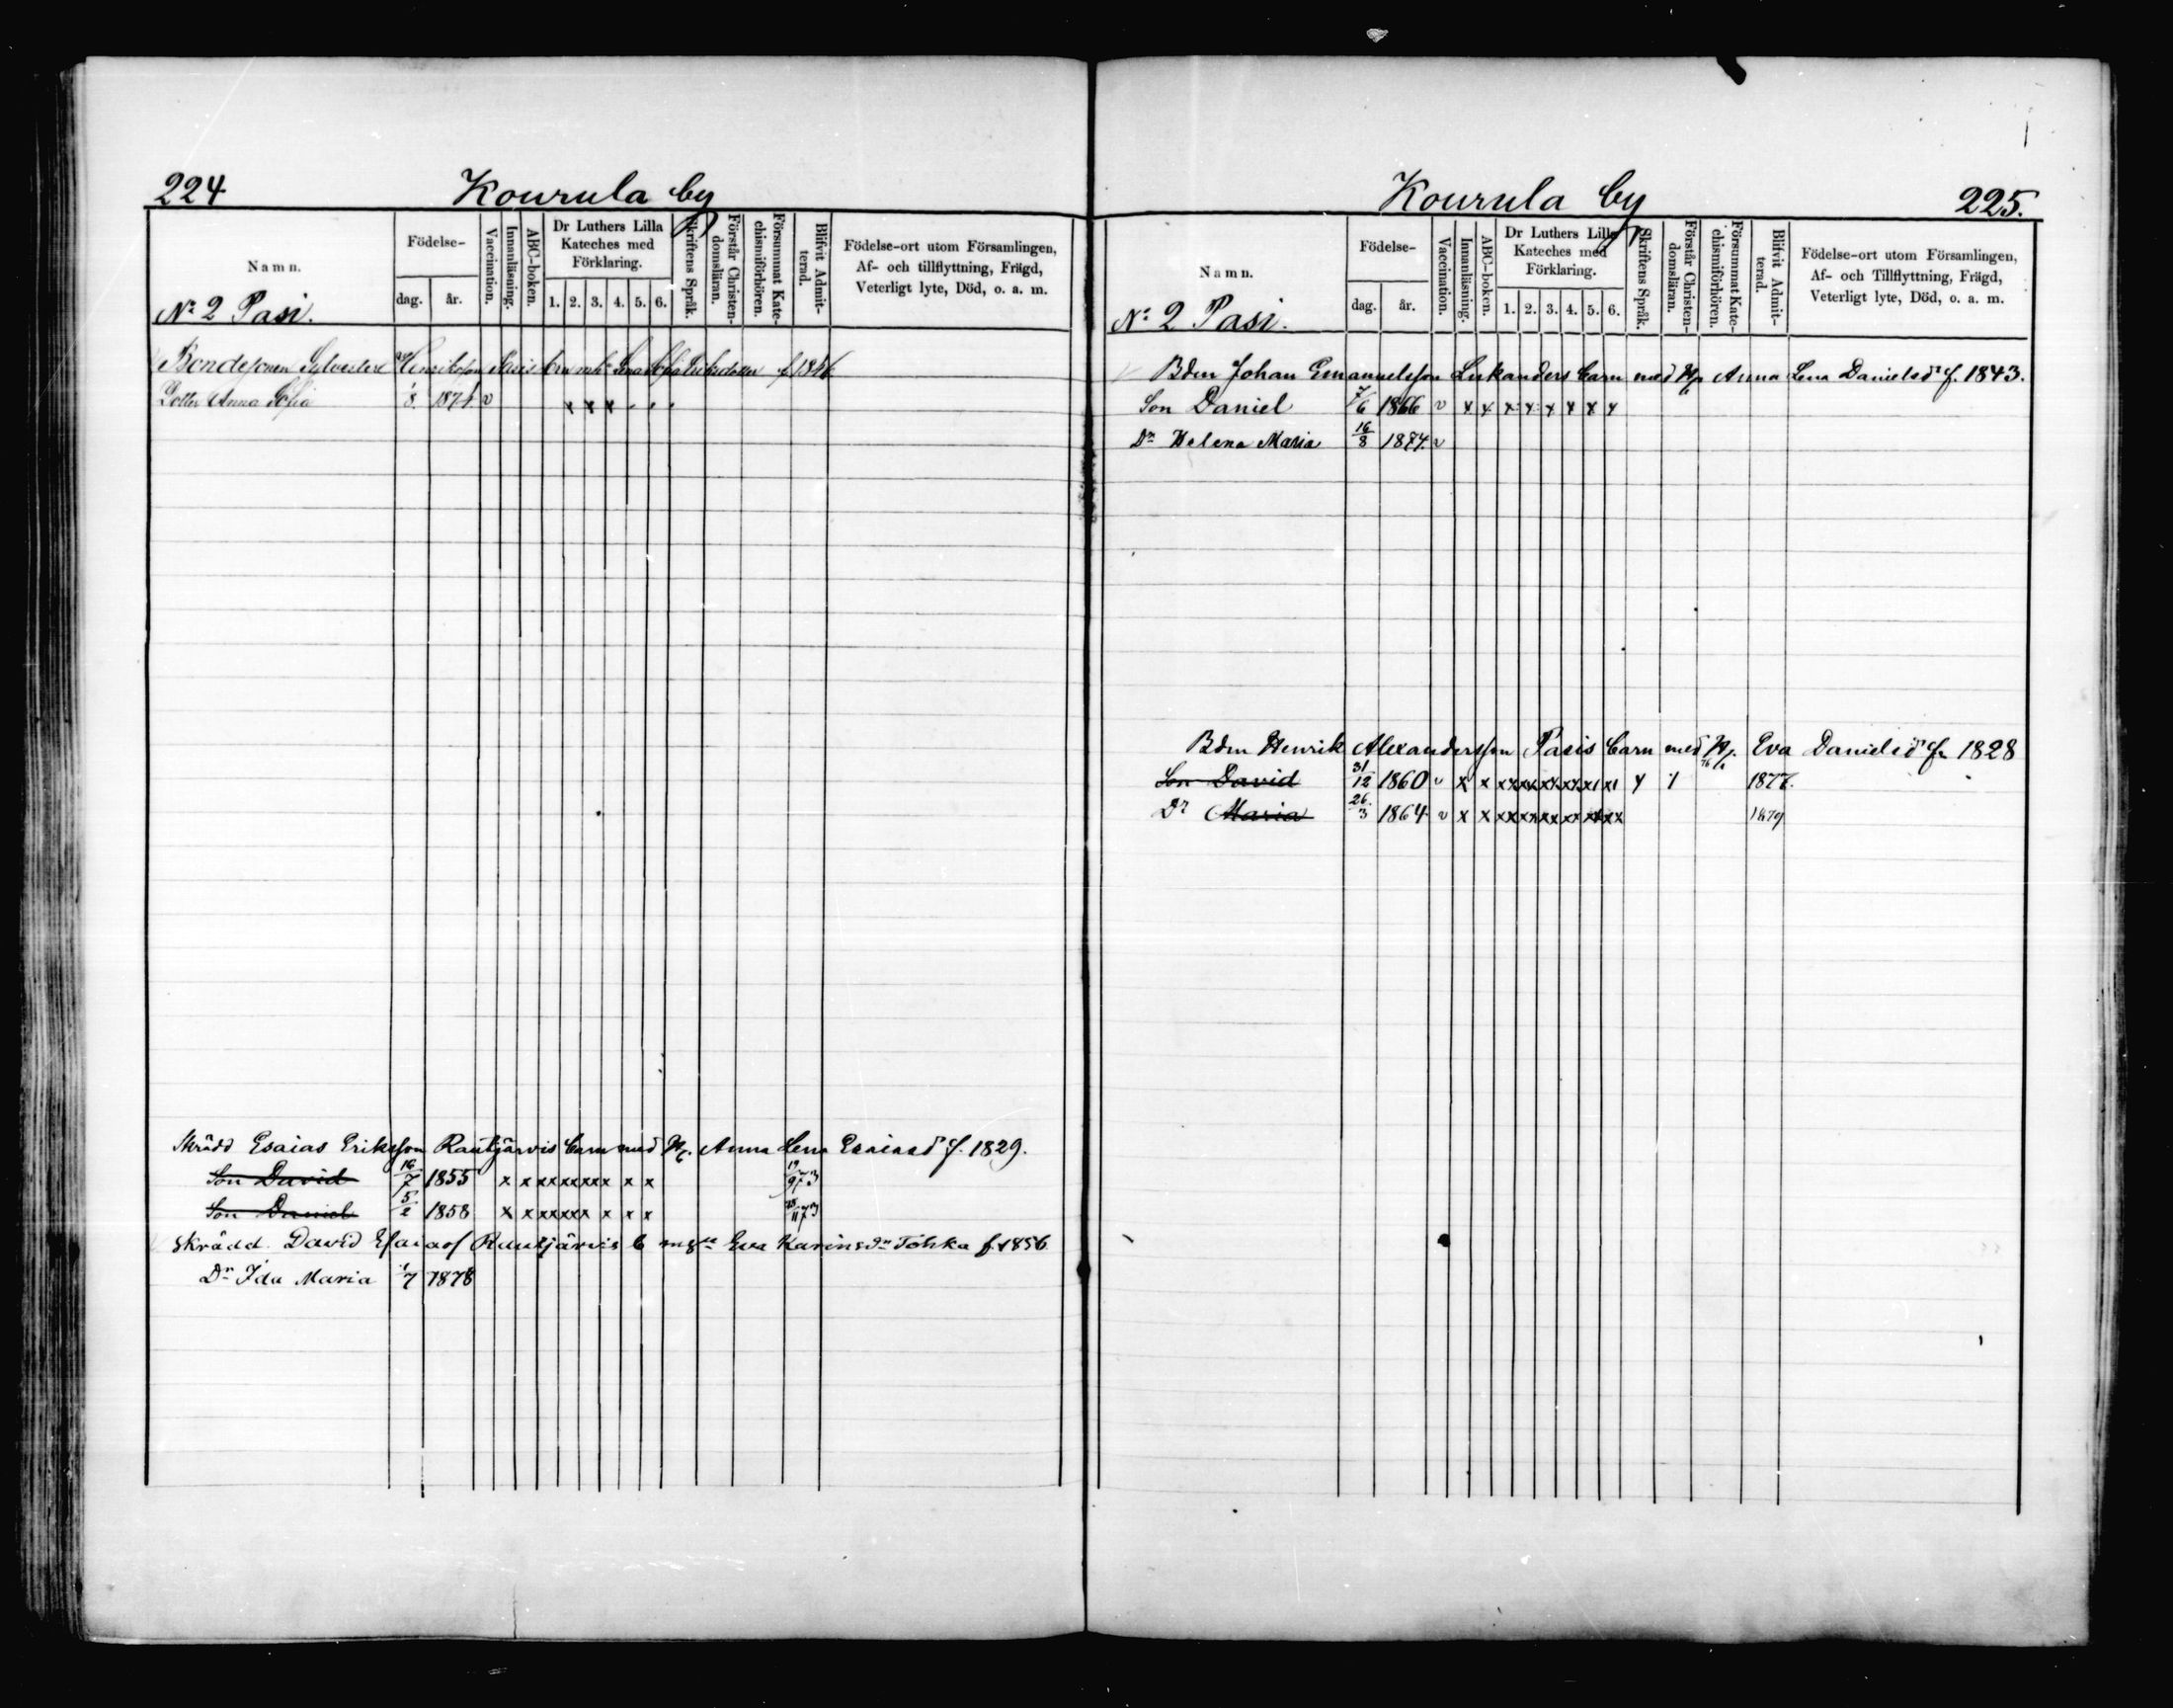 224 Kourula by
Namn. Födelse- dag. år. Vaccination. Innanläsning. ABC-boken. Dr Luthers Lilla Kateches med Förklaring. 1. 2. 3. 4. 5. 6. Skriftens Språk. Förstår Christendomsläran. Försummat Katechismiförhören. Blifvit Admitterad. Födelse-ort utom Församlingen, Af- och tillflyttning, Frägd, Veterligt lyte, Död, o. a. m.
No 2 Pasi.
Bondesonen Sylvester Henriksson Pasis f 1846
Dotter Anna Sofia 1/8 1871 v x x x
Skrädd Esaias Eriksson Rautjärvis barn med Hu. Anna Lena Esaiasdr f. 1829.
Son David 16/7 1855 x x xx xx xxx x x 19/9 73
Son Daniel 5/2 1858 x x xx xxx x x x 11 73
Skrädd. David Esaiass Rautjärvis b Eva Karinsdr Töhkä f. 1856
Dr Ida Maria 1/7 1878
Kourula by 225.
Namn. Födelse- dag. år. Vaccination. Innanläsning. ABC-boken. Dr Luthers Lilla Kateches med Förklaring. 1. 2. 3. 4. 5. 6. Skriftens Språk. Förstår Christendomsläran. Försummat Katechismiförhören. Blifvit Admitterad. Födelse-ort utom Församlingen, Af- och Tillflyttning, Frägd, Veterligt lyte, Död, o. a. m.
No 2 Pasi.
Bdm Johan Emanuelsson Lukanders barn med Hu Anna Lena Danielsdr f. 1843.
Son Daniel 7/6 1866 v x x x x x x x x
Dr Helena Maria 16/8 1874 v
Bdm Henrik Alexandersson Pasis barn med Hu. Eva Danielsdr f. 1828
Son David 31/12 1860 v x x xx xx xx xx xx x1 1877.
Dr Maria 26/3 1864 v x x xx xx xx xx xx xx 1879